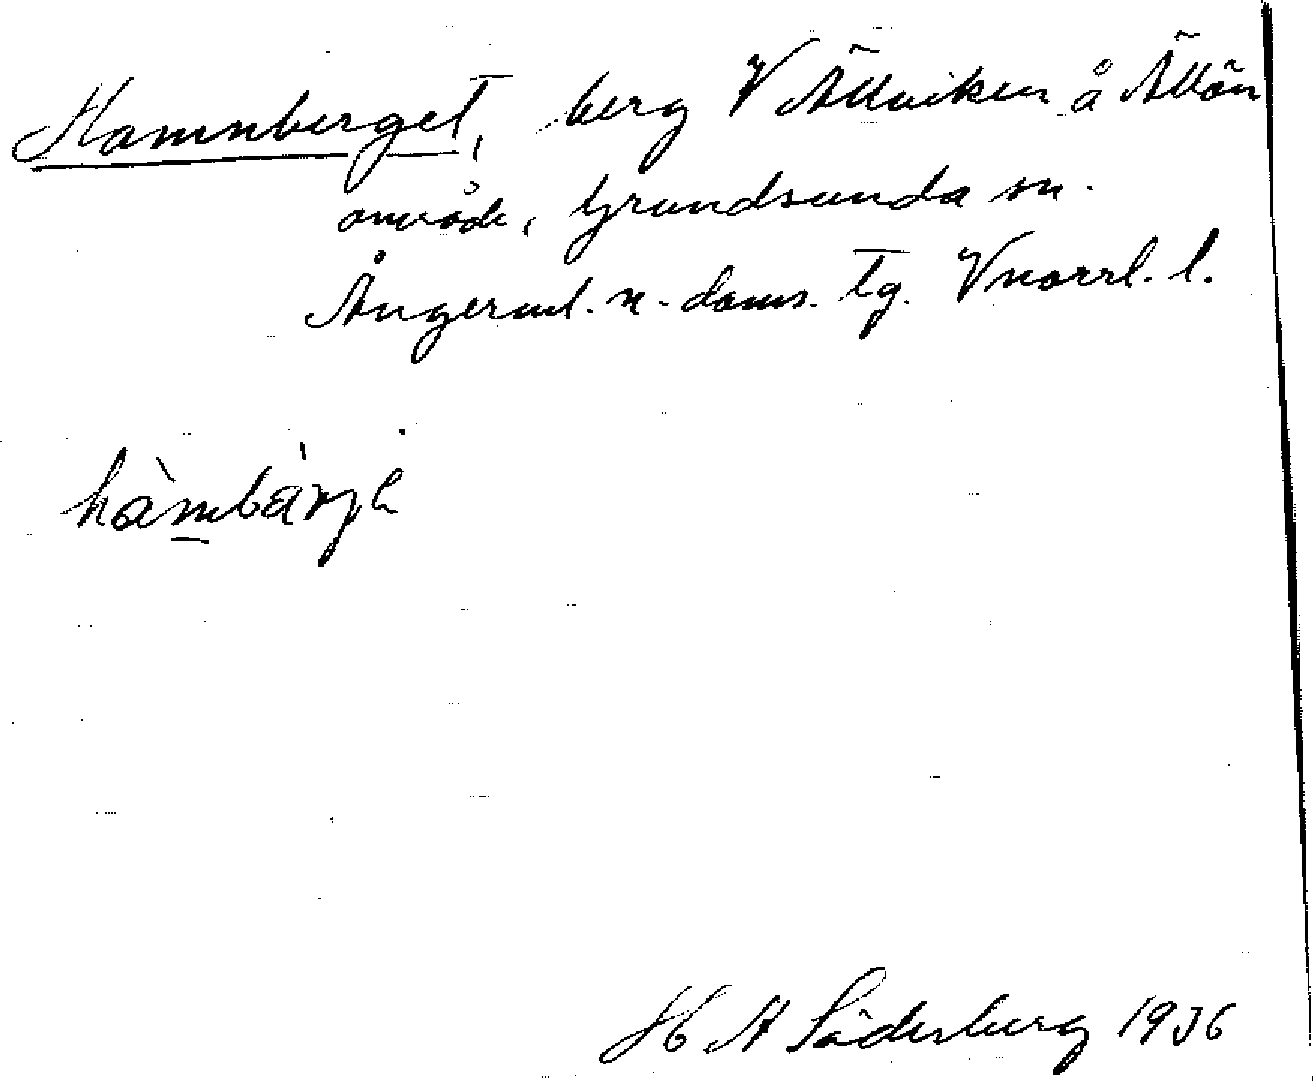 Hamnberget, berg VÄllviken åÄllön
område, Grundsunda sn.
Ångerml. n. doms. Tg. Vnorrl. l.
hàmbà̀rjè
H A Söderberg 1936